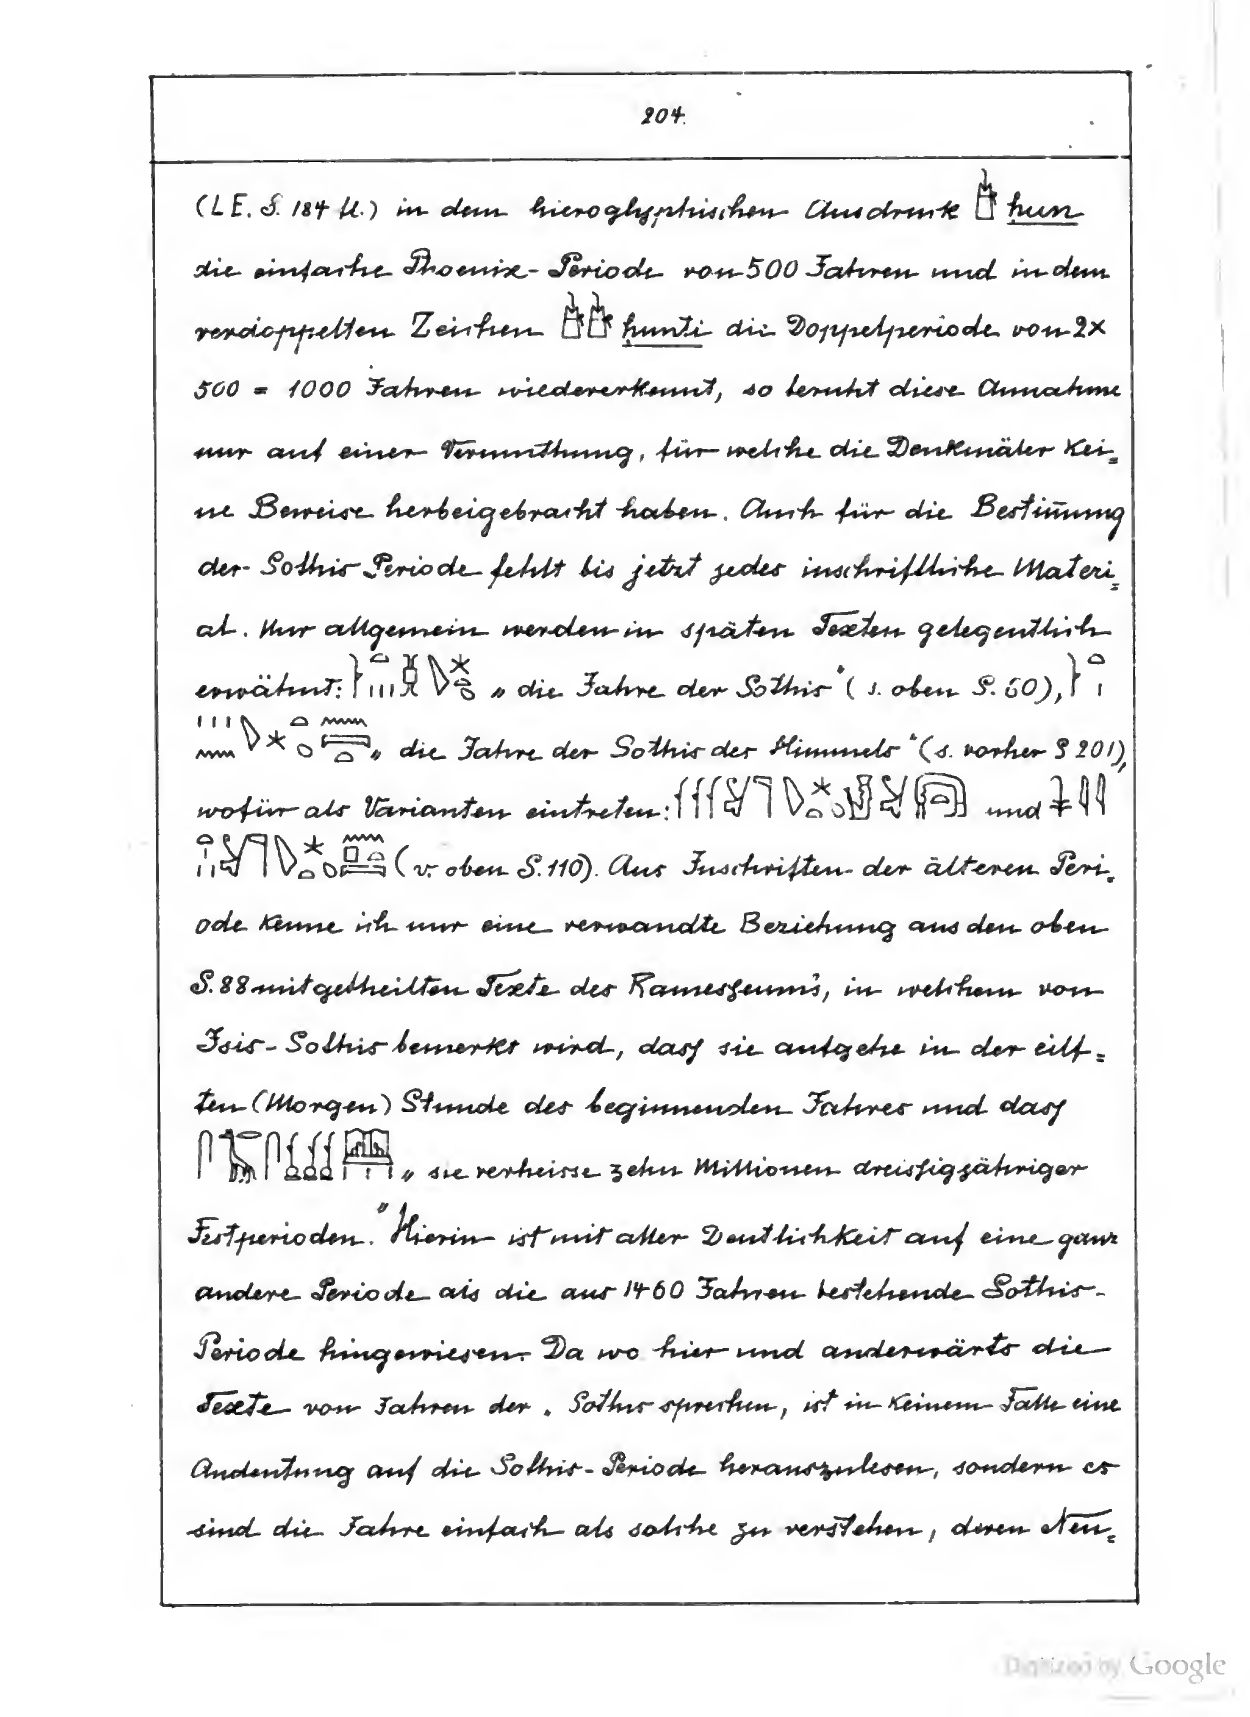 204.
(LE. S. 184 ff.) in dem hieroglyphischen Ausdruck hun
die einfache Phoenix-Periode von 500 Jahren und in dem
verdoppelten Zeichen hunti die Doppelperiode von 2×
500 = 1000 Jahren wiedererkennt, so beruht diese Annahme
nur auf einer Vermuthung, für welche die Denkmäler kei=
ne Beweise herbeigebracht haben. Auch für die Bestim̅ung
der Sothis Periode fehlt bis jetzt jedes inschriftliche Materi=
al. Nur allgemein werden in späten Texten gelegentlich
erwähnt: „die Jahre der Sothis" (s. oben S. 60),
„die Jahre der Sothis des Himmels" (s. vorher S 201),
wofür als Varianten eintreten: und
(v. oben S. 110). Aus Inschriften der älteren Peri=
ode kenne ich nur eine verwandte Beziehung aus den oben
S. 88 mitgetheilten Texte des Ramesseum's, in welchem von
Isis-Sothis bemerkt wird, dass sie aufgehe in der eilf=
ten (Morgen) Stunde des beginnenden Jahres und dass
„sie verheisse zehn Millionen dreissigjähriger
Festperioden." Hierin ist mit aller Deutlichkeit auf eine ganz
andere Periode als die aus 1460 Jahren bestehende Sothis-
Periode hingewiesen. Da wo hier und anderwärts die
Texte von Jahren der Sothis sprechen, ist in keinem Falle eine
Andeutung auf die Sothis-Periode herauszulesen, sondern es
sind die Jahre einfach als solche zu verstehen, deren Neu=
Digitized by Google